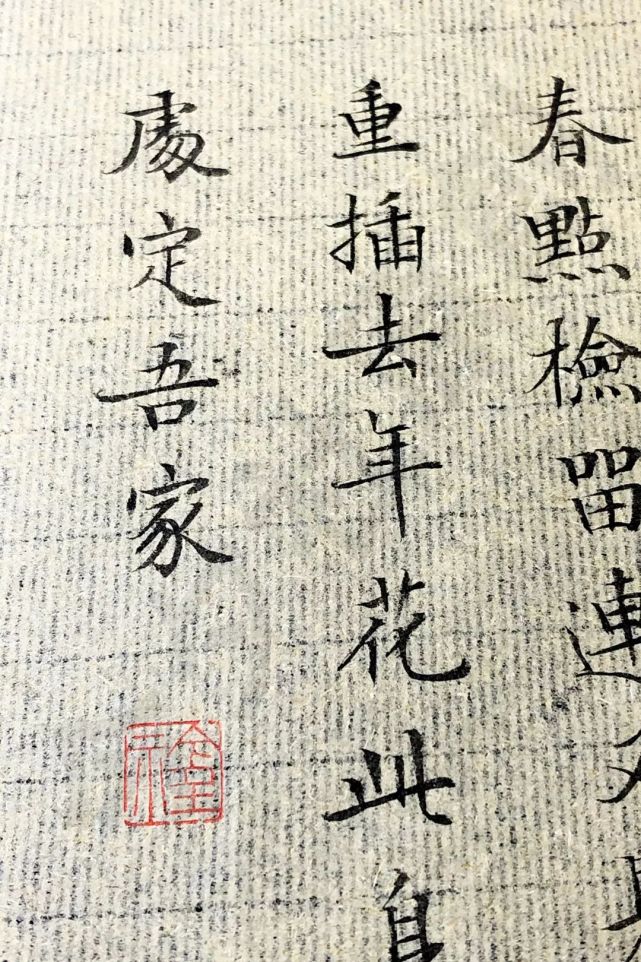 春點檢留連
重插去年花此身
處定吾家